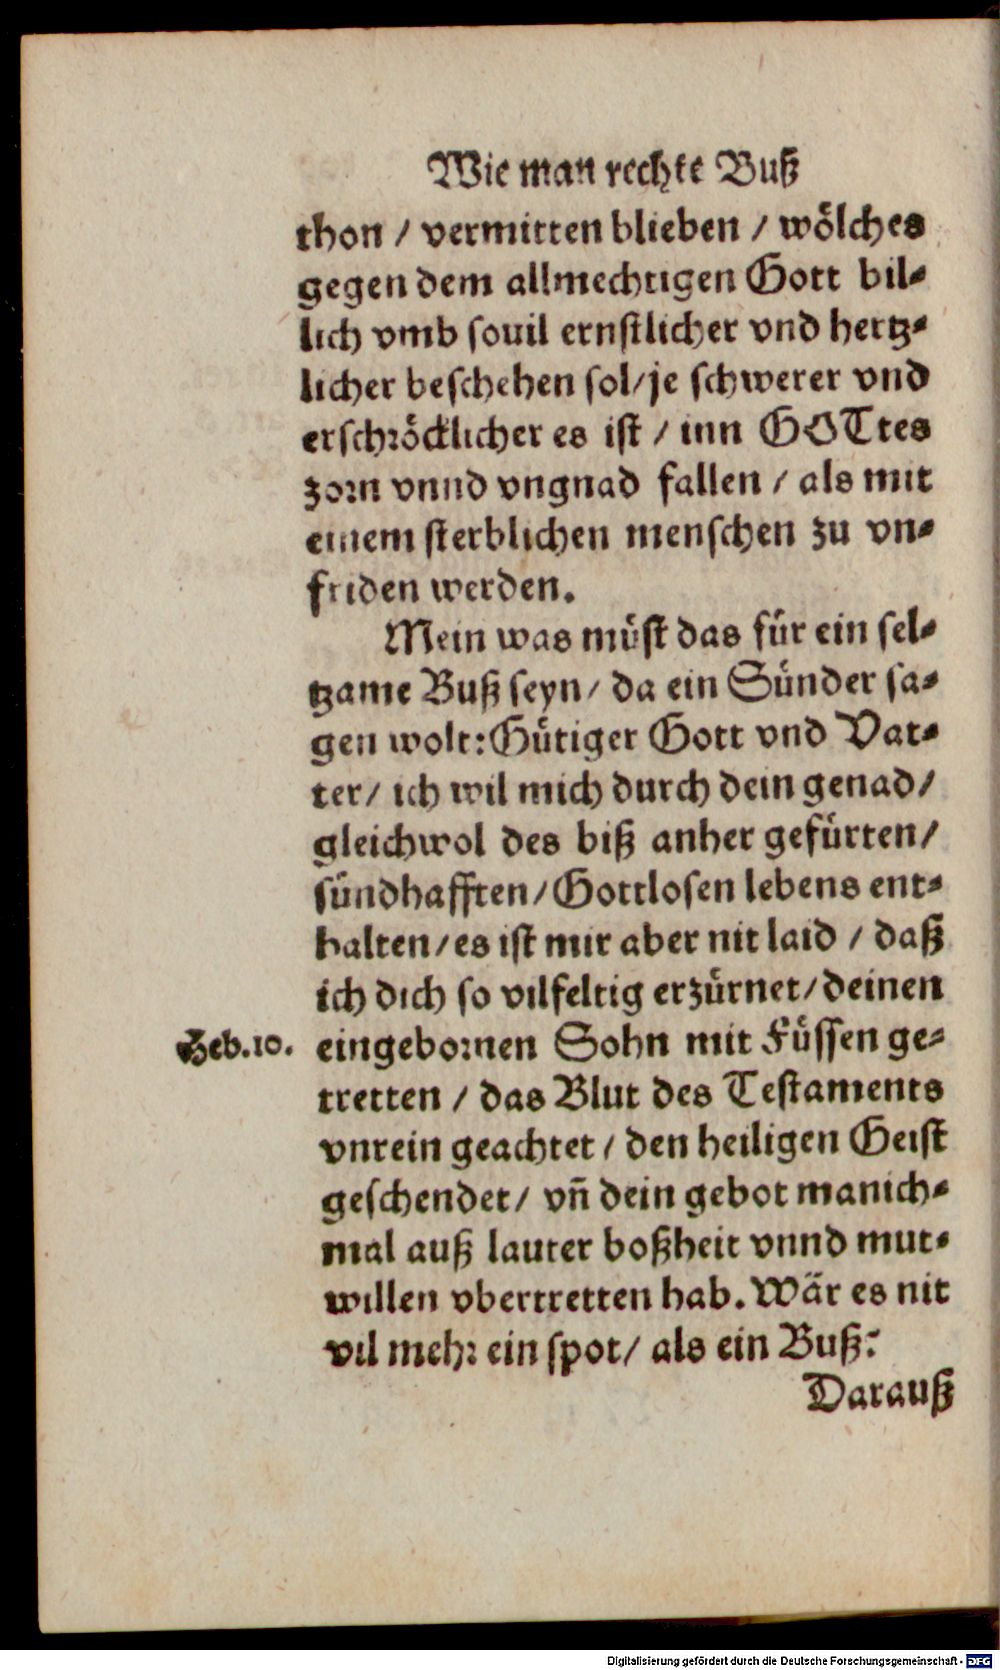 Wie man rechte Buß
thon / vermitten blieben / wölches
gegen dem allmechtigen Gott bil⸗
lich vmb souil ernstlicher vnd hertz⸗
licher beschehen sol/je schwerer vnd
erschröcklicher es ist / inn GOTtes
zorn vnnd vngnad fallen / als mit
einem sterblichen menschen zu vn⸗
friden werden.
Mein was müst das für ein sel⸗
tzame Buß seyn/ da ein Sünder sa⸗
gen wolt: Gütiger Gott vnd Vat⸗
ter/ ich wil mich durch dein genad/
gleichwol des biß anher gefürten/
sündhafften/Gottlosen lebens ent⸗
halten/es ist mir aber nit laid / daß
ich dich so vilfeltig erzürnet/deinen
Heb.10. eingebornen Sohn mit Füssen ge⸗
tretten / das Blut des Testaments
vnrein geachtet / den heiligen Geist
geschendet/ vñ dein gebot manich⸗
mal auß lauter boßheit vnnd mut⸗
willen vbertretten hab. Wär es nit
vil mehr ein spot/ als ein Buß?
Darauß
Digitalisierung gefördert durch die Deutsche Forschungsgemeinschaft - DFG